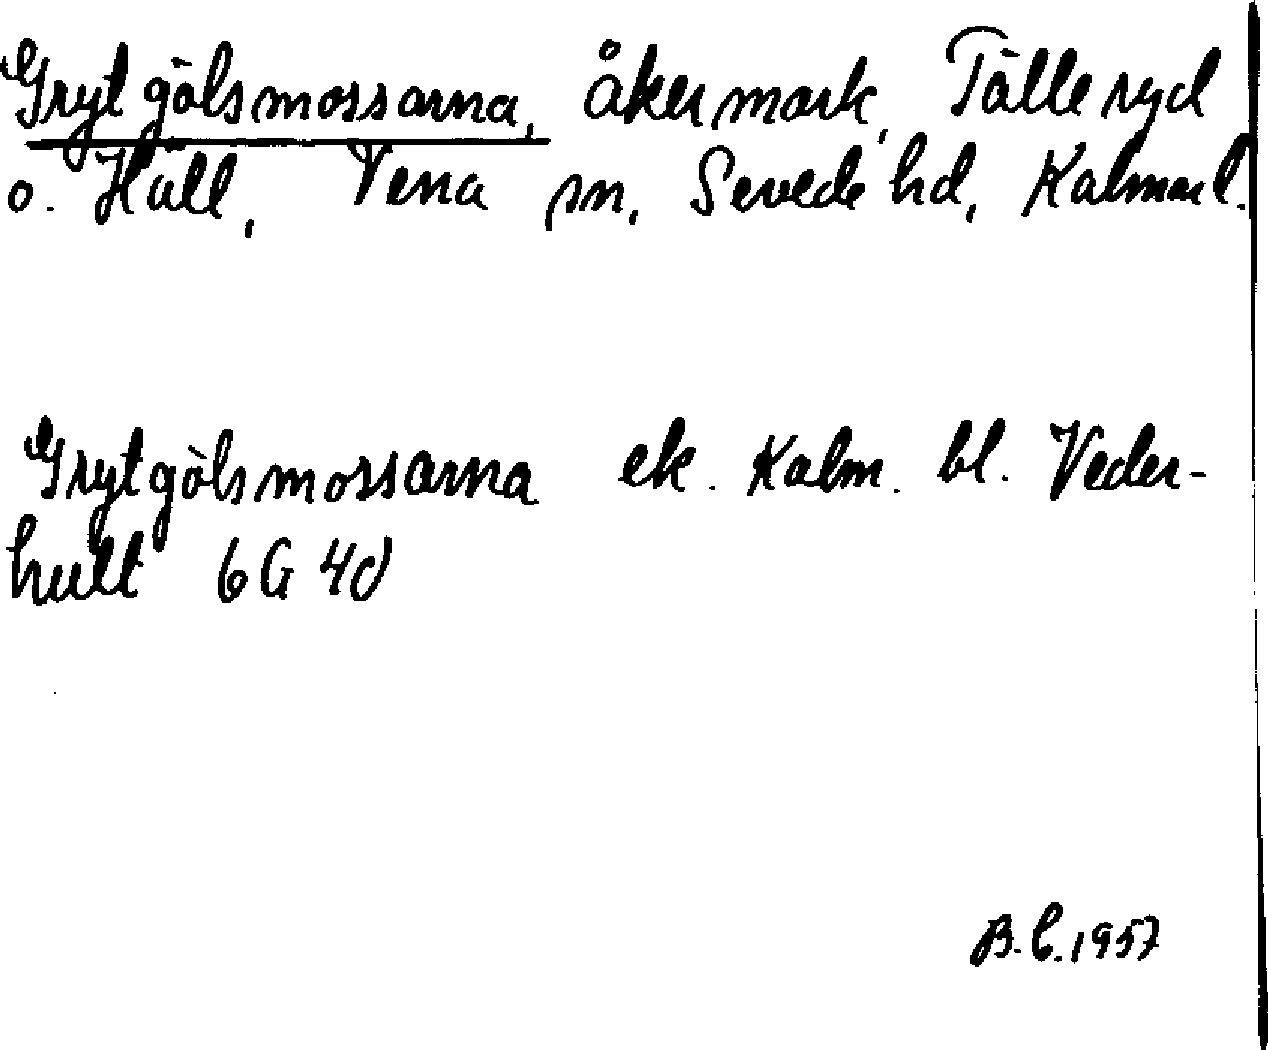 Grytgölsmossarna, åkermark, Tälleryd
o. Häll, Vena sn, Sevede hd, Kalmar l.
Grytgölsmossarna ek. Kalm. bl. Veder-
hult 6G 4d
B.C. 1957